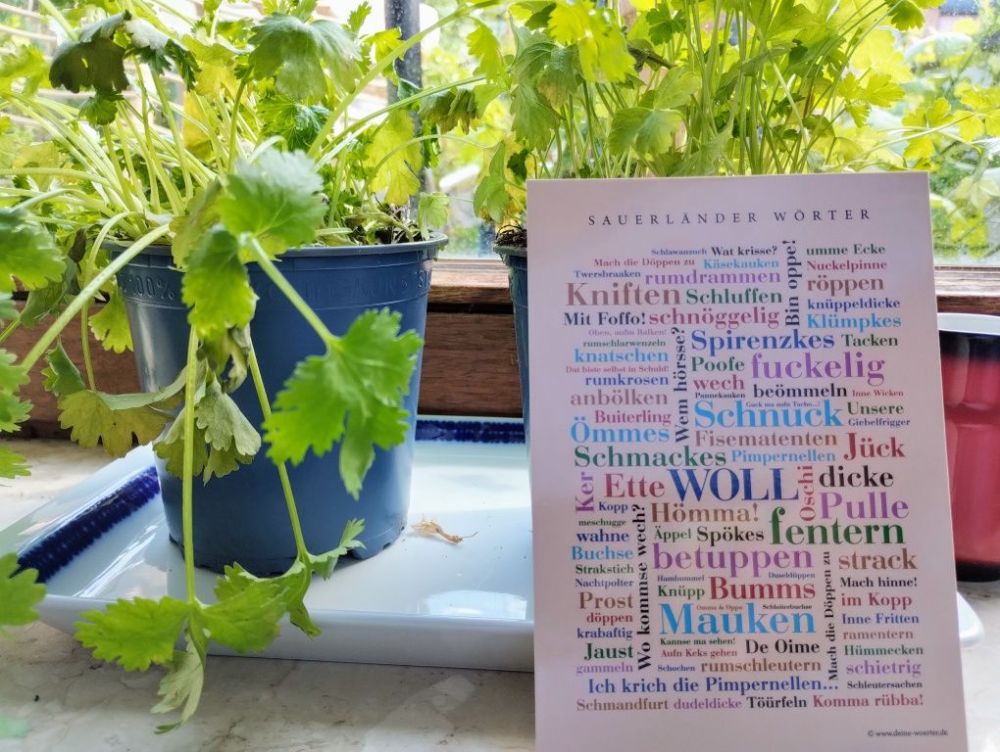 SAUERLÄNDER WÖRTER
Schlawanzuch Wat krisse?
umme Ecke
Mach die Döppen zu Käsekauken
Nuckelpinne
Twersbraaken rumdrammen
röppen
Bin oppe!
Kniften Schluffen
knüppeldicke
Mit Foffo! schnöggelig
Klümpkes
Oben, aufm Balken!
rumschlarwenzeln
Wem hörsse?
Spirenzkes Tacken
knatschen
Poofe fuckelig
Dat biste selbst in Schuld!
rumkrosen
wech
Pannekauken
beömmeln Inne Wicken
anbölken
Guck ma aufn Tacho...!
Buiterling
Schnuck Unsere
Giebelfrigger
Ömmes Fisematenten Jück
Schmackes Pimpernellen
Ker Ette WOLL Oschi dicke
Kopp
Pulle
meschugge
Hömma!
wahne
Äppel Spökes fentern
Jaust
Buchse
betuppen strack
Strakstich
Nachtpolter
Hambummel Duseldüppen
Mach hinne!
Knüpp Bumms im Kopp
Prost
Wo kommse wech?
Omma & Oppa Schleiterbuchse
Mach die Döppen zu
döppen
Mauken Inne Fritten
krabaftig
Kannse ma sehen!
ramentern
Jaust
Aufn Keks gehen De Oime
Hümmecken
gammeln
Sochen rumschleutern schietrig
Ich krich die Pimpernellen... Schleutersachen
Schmandfurt dudeldicke Töürfeln Komma rübba!
© www.deine-woerter.de
100%